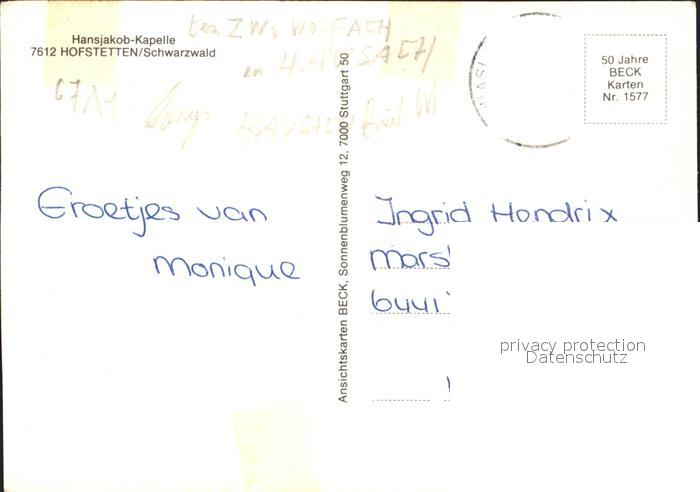 Hansjakob-Kapelle
7612 HOFSTETTEN/Schwarzwald
ten ZWv WOLFACH
en HAUSACH
HAUSACH
50 Jahre
BECK
Karten
Nr. 1577
Ansichtskarten BECK, Sonnenblumenweg 12, 7000 Stuttgart 50
Groetjes van
Monique
Ingrid Hondrix
Mars
6441
privacy protection
Datenschutz